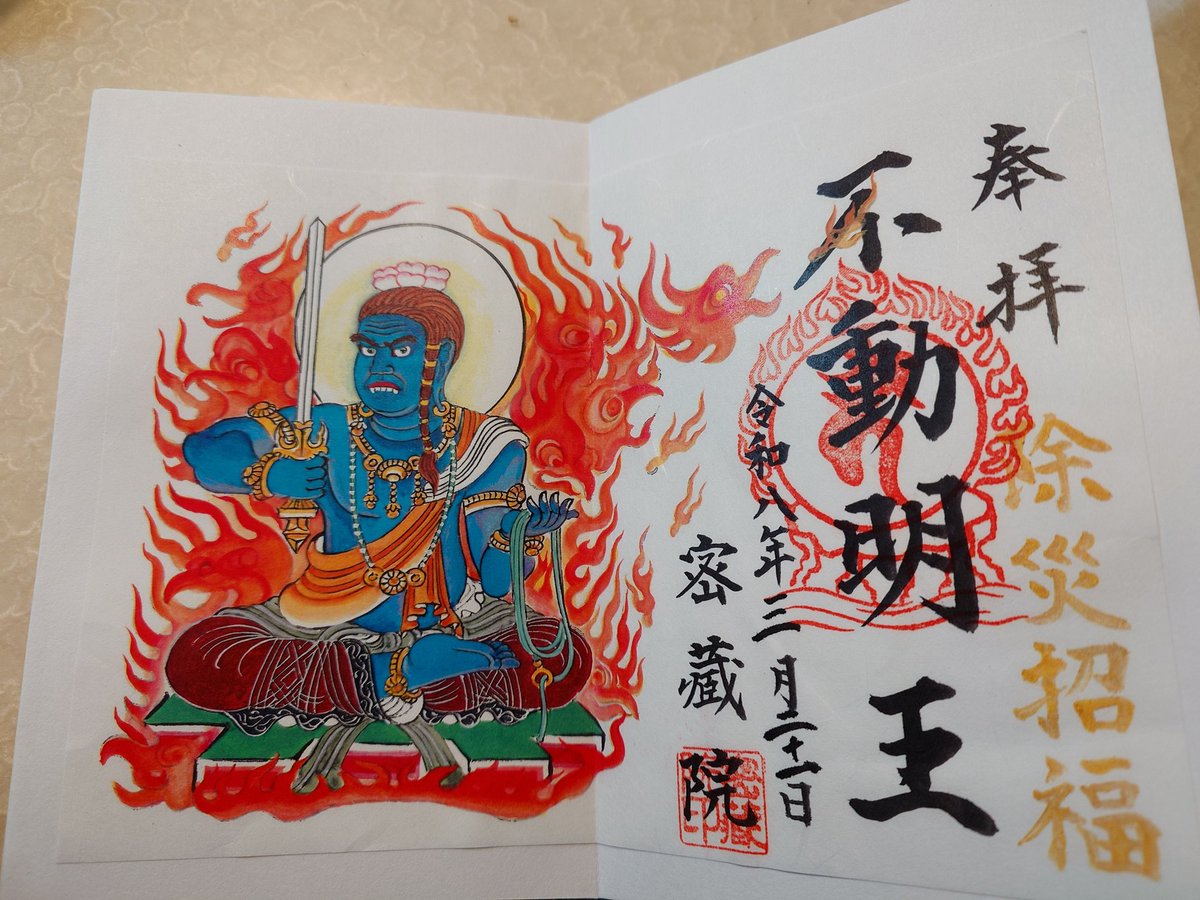 奉拝
除災招福
不動明王
令和八年三月二十一日
密藏院